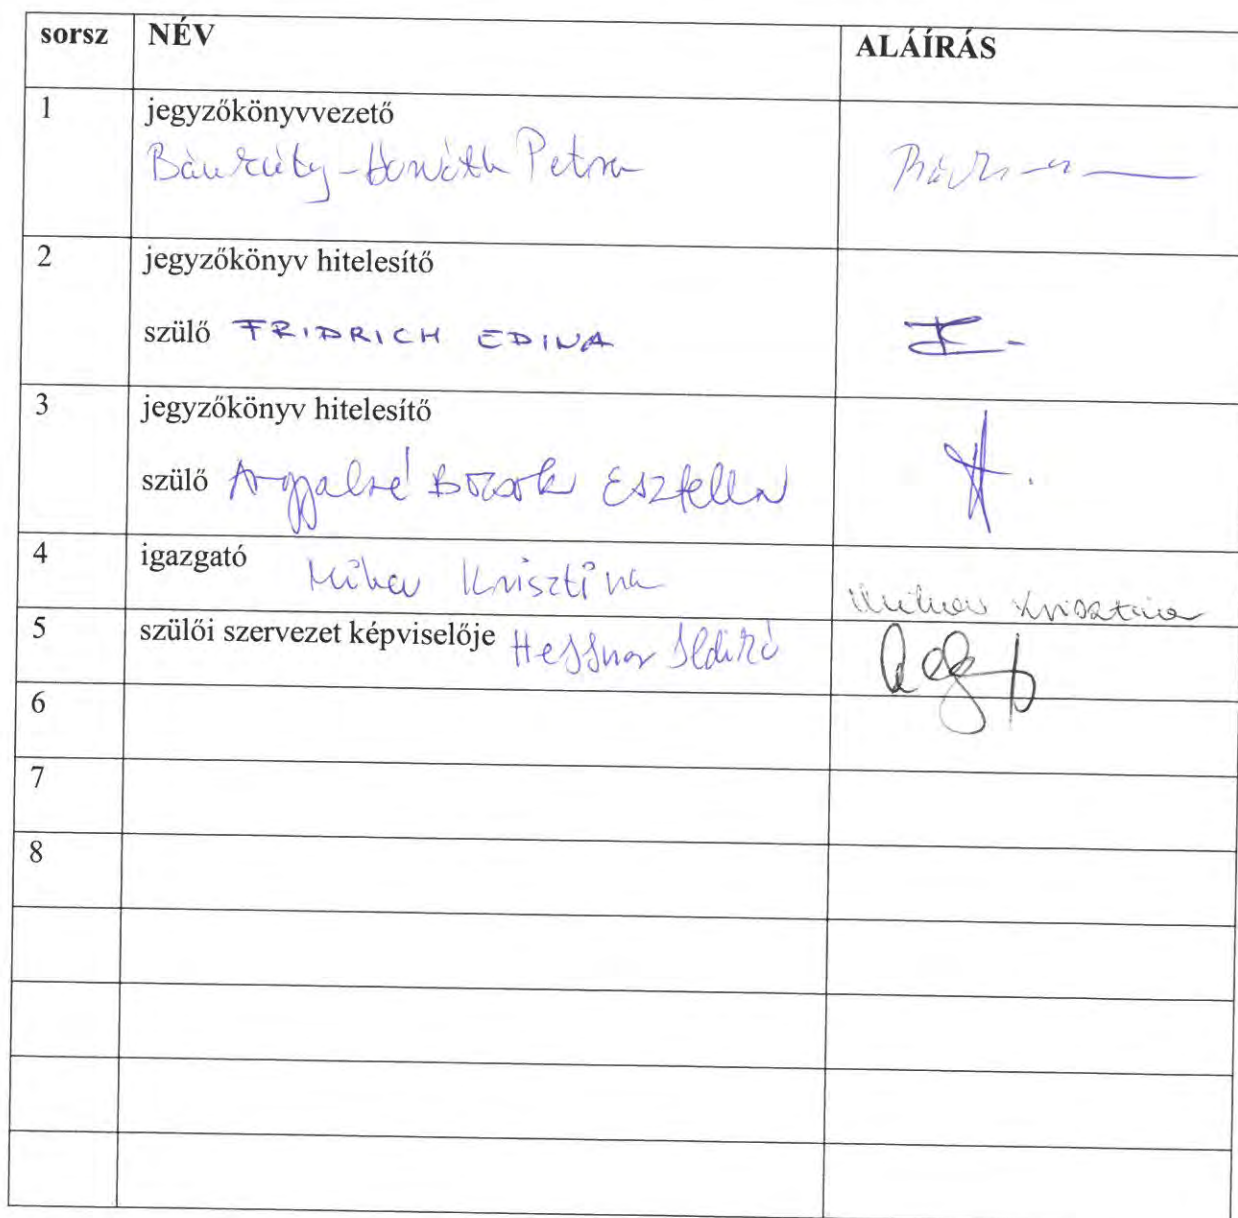 sorsz NÉV ALÁÍRÁS
1 jegyzőkönyvvezető
Petra
2 jegyzőkönyv hitelesítő
szülő FRIDRICH EDINA
3 jegyzőkönyv hitelesítő
szülő Bozsok Esztella
4 igazgató Krisztina Krisztina
5 szülői szervezet képviselője Ildikó
6
7
8